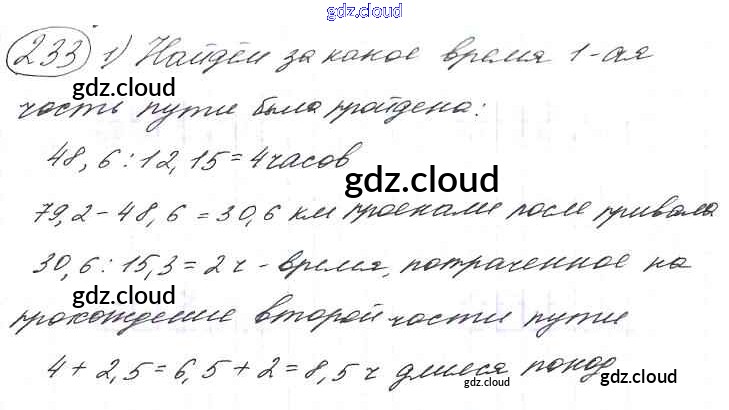 gdz.cloud
233 1) Найдём за какое время 1-ая
gdz.cloud
часть пути была пройдена:
48,6 : 12,15 = 4 часов
gdz.cloud
79,2 - 48,6 = 30,6 км проехали после привала
30,6 : 15,3 = 2 ч - время, потраченное на
gdz.cloud
прохождение второй части пути
4 + 2,5 = 6,5 + 2 = 8,5 ч длился поход
gdz.cloud
gdz.cloud